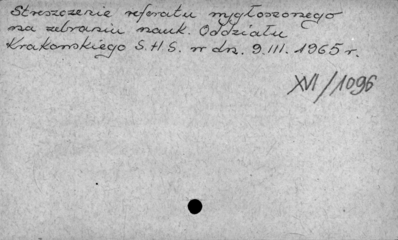 Streszczenie referatu wygłoszonego
na zebraniu nauk. Oddziału
Krakowskiego S.H.S. w dn. 9.III.1965 r.
XVI/1096